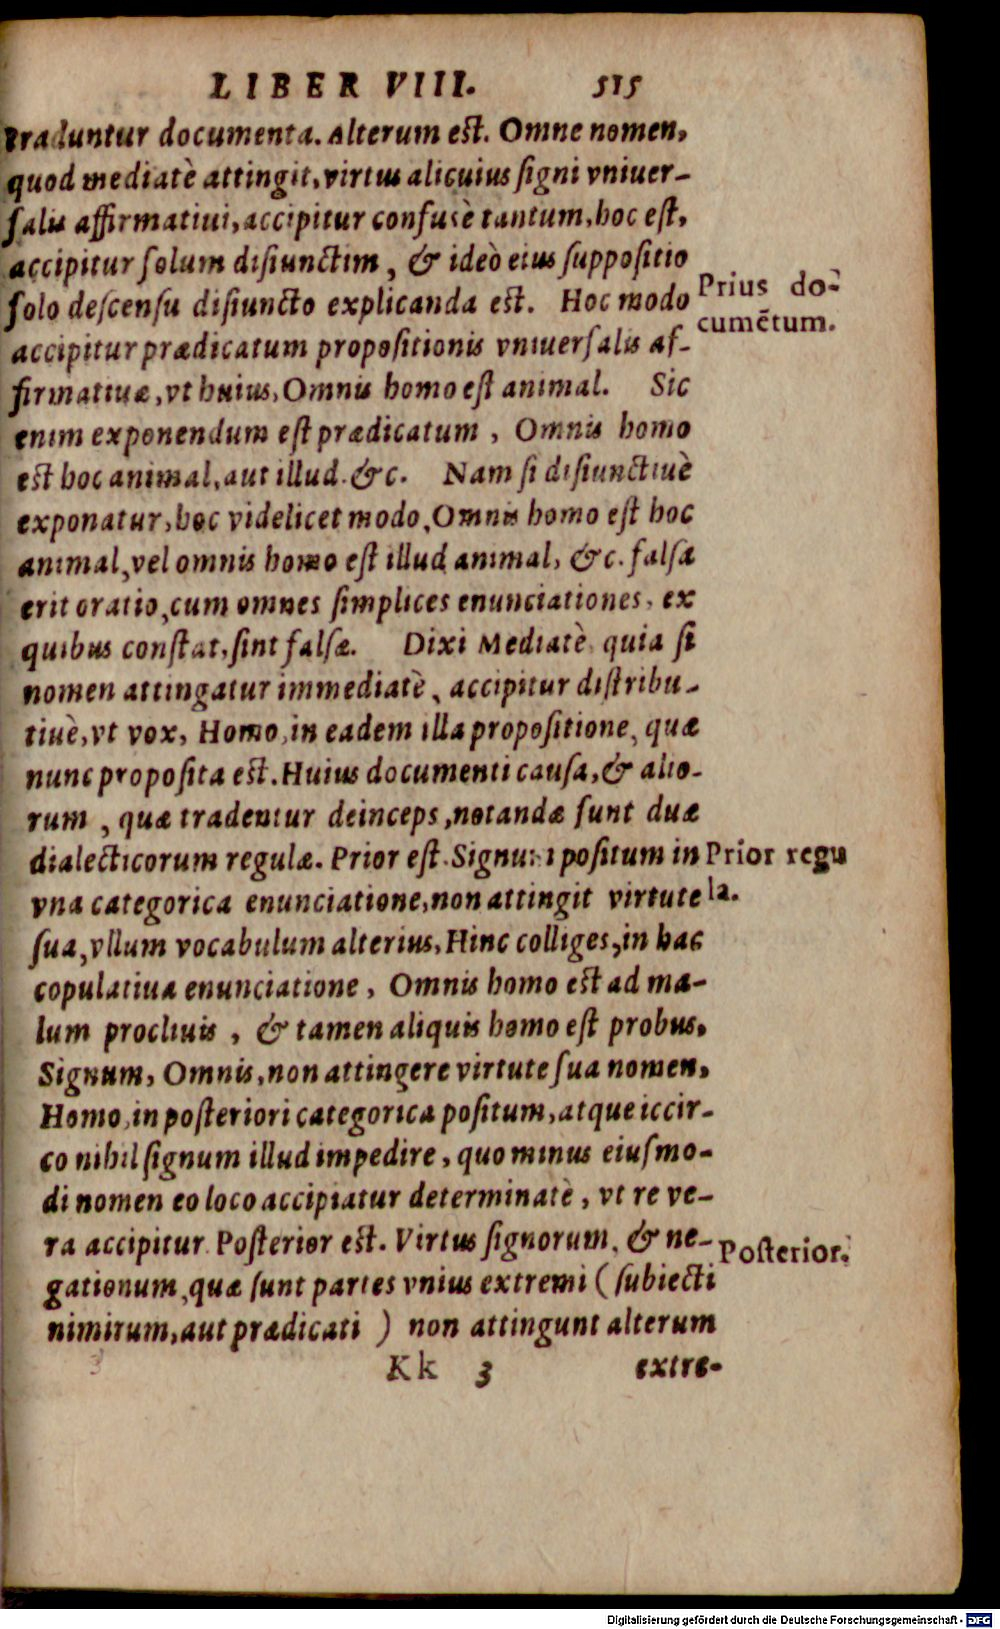 LIBER VIII. 515
traduntur documenta. Alterum est. Omne nomen,
quod mediatè attingit, virtus alicuius signi vniuer-
salis affirmatiui, accipitur confusè tantum, hoc est,
accipitur solum disiunctim, & ideò eius suppositio
solo descensu disiuncto explicanda est. Hoc modo
Prius do-
cumẽtum.
accipitur prædicatum propositionis vniuersalis af-
firmatiuæ, vt huius, Omnis homo est animal. Sic
enim exponendum est prædicatum, Omnis homo
est hoc animal, aut illud. &c. Nam si disiunctiuè
exponatur, hoc videlicet modo, Omnis homo est hoc
animal, vel omnis homo est illud animal, &c. falsa
erit oratio, cum omnes simplices enunciationes, ex
quibus constat, sint falsæ. Dixi Mediatè, quia si
nomen attingatur immediatè, accipitur distribu-
tiuè, vt vox, Homo, in eadem illa propositione, quæ
nunc proposita est. Huius documenti causa, & alio-
rum, quæ tradentur deinceps, notandæ sunt duæ
dialecticorum regulæ. Prior est. Signum positum in
Prior regu
la.
vna categorica enunciatione, non attingit virtute
sua, vllum vocabulum alterius, Hinc colliges, in hac
copulatiua enunciatione, Omnis homo est ad ma-
lum procliuis, & tamen aliquis homo est probus,
Signum, Omnis, non attingere virtute sua nomen,
Homo, in posteriori categorica positum, atque iccir-
co nihil signum illud impedire, quo minus eiusmo-
di nomen eo loco accipiatur determinatè, vt re ve-
ra accipitur. Posterior est. Virtus signorum, & ne-
Posterior.
gationum, quæ sunt partes vnius extremi (subiecti
nimirum, aut prædicati) non attingunt alterum
Kk 3 extre-
Digitalisierung gefördert durch die Deutsche Forschungsgemeinschaft - DFG